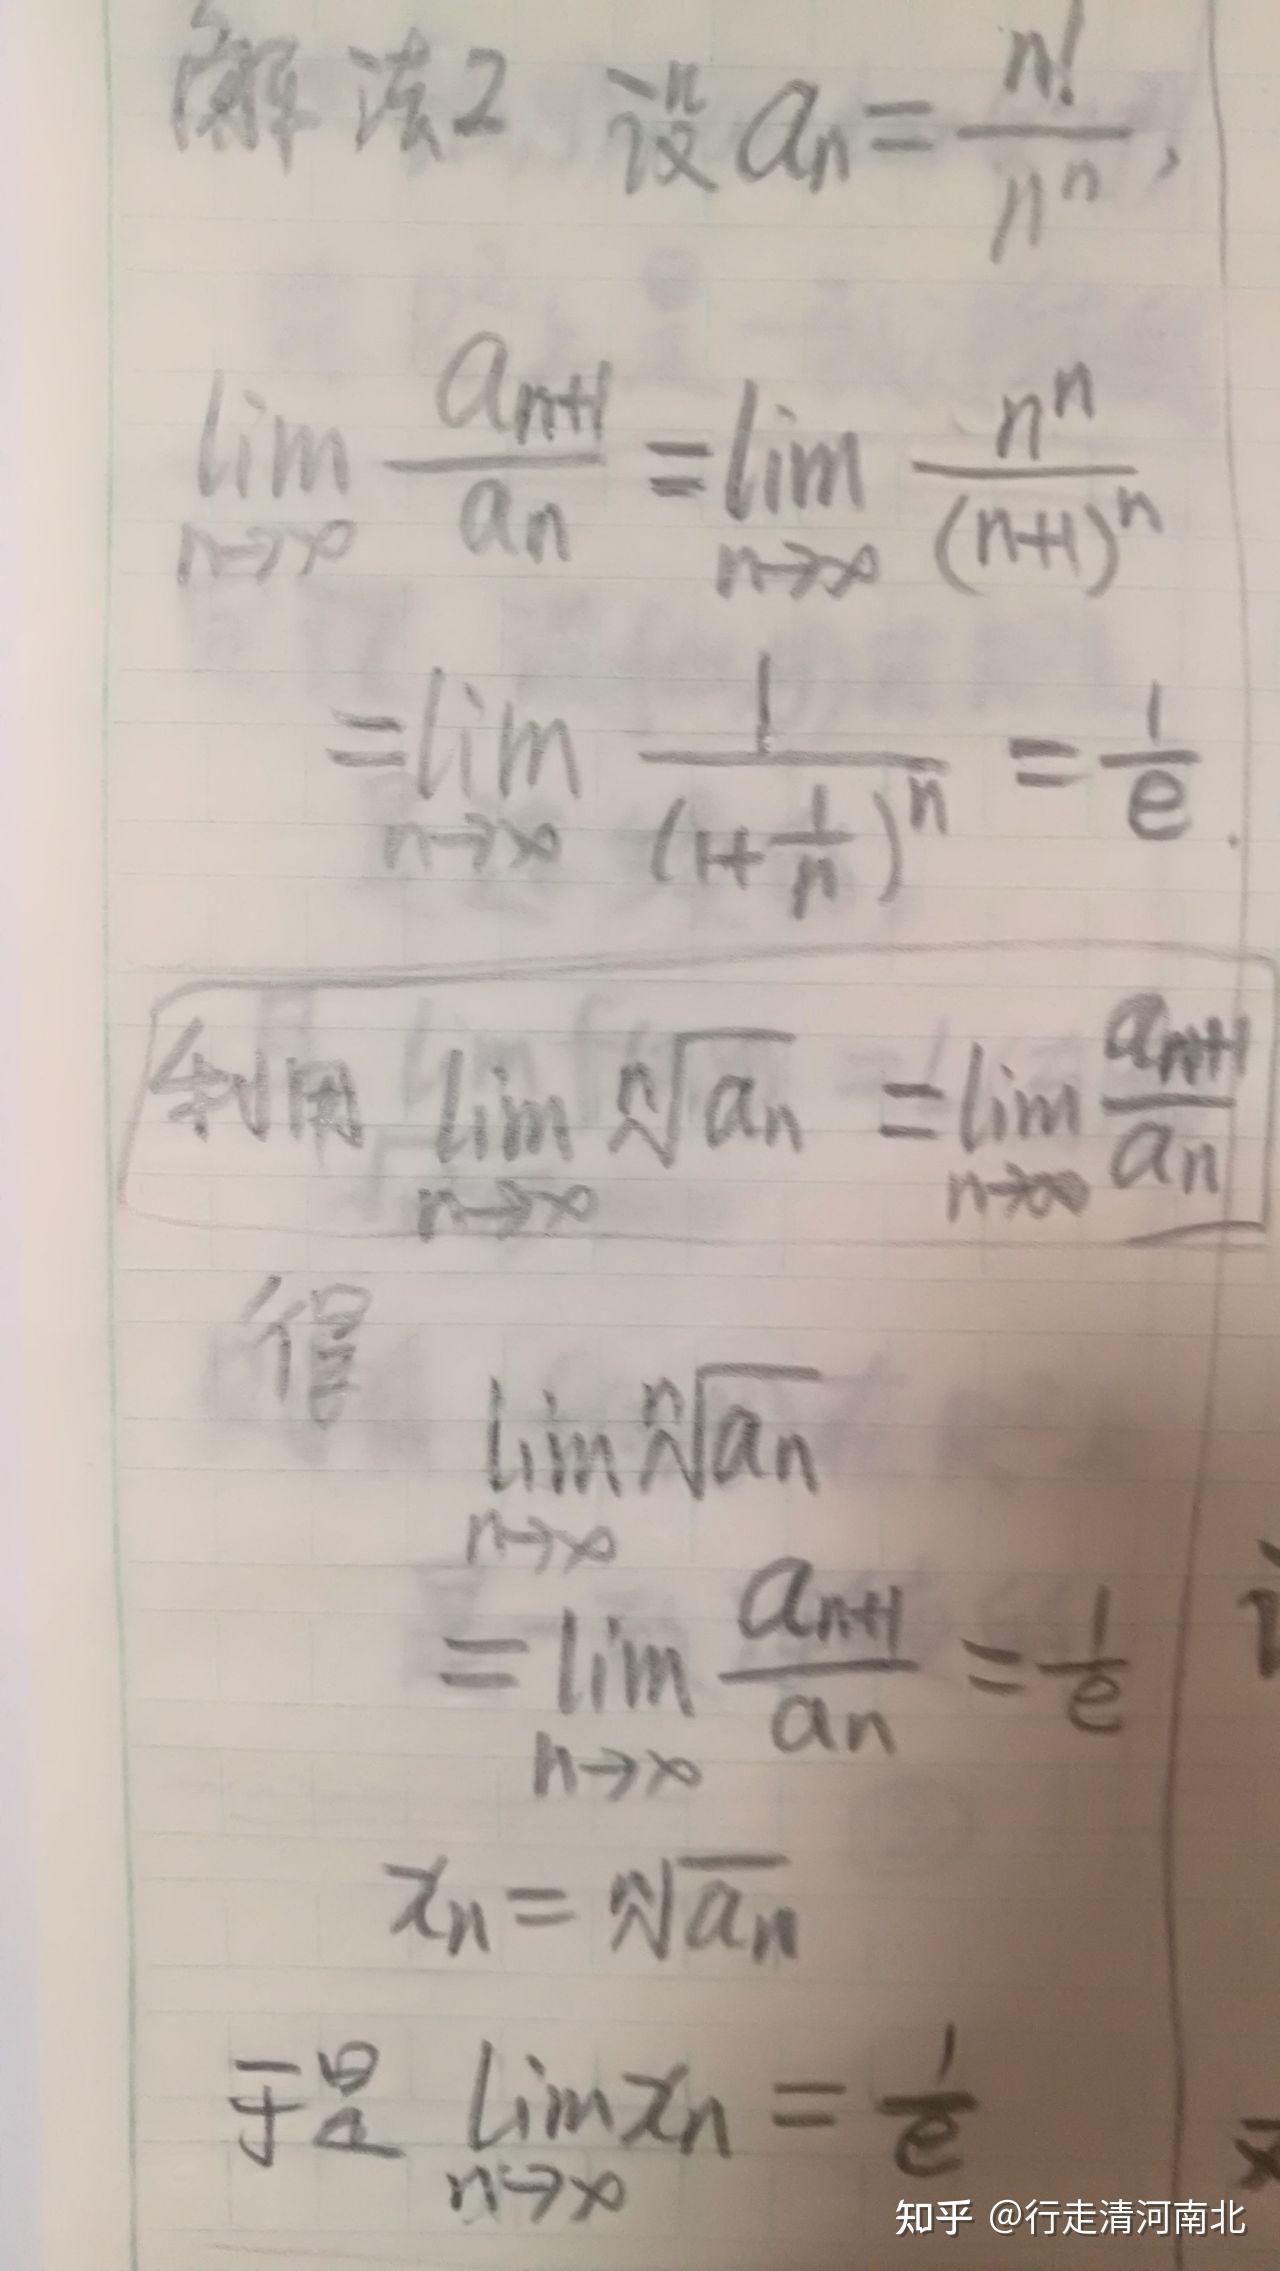 解法2 设 aₙ = n!/nⁿ,
lim n→∞ aₙ₊₁/aₙ = lim n→∞ nⁿ/(n+1)ⁿ
= lim n→∞ 1/(1+1/n)ⁿ = 1/e.
利用 lim n→∞ ⁿ√aₙ = lim n→∞ aₙ₊₁/aₙ
得
lim n→∞ ⁿ√aₙ
= lim n→∞ aₙ₊₁/aₙ = 1/e
xₙ = ⁿ√aₙ
于是 lim n→∞ xₙ = 1/e
知乎 @行走清河南北